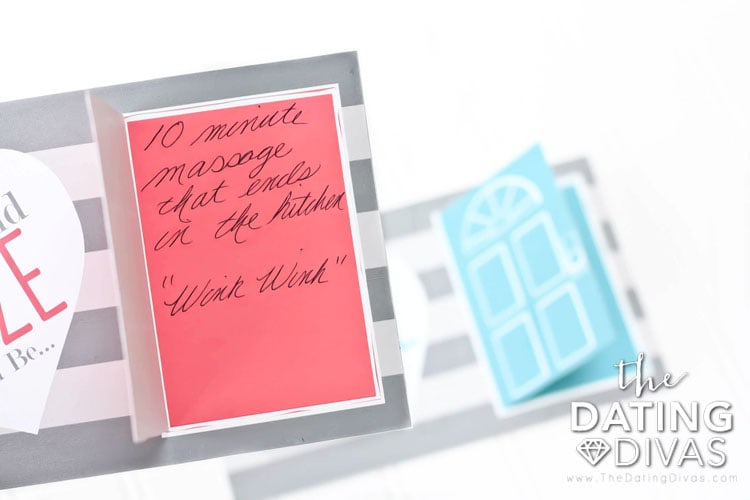 10 minute
massage
that ends
in the kitchen
"Wink Wink"
ZE
Be...
the
DATING
DIVAS
www.TheDatingDivas.com